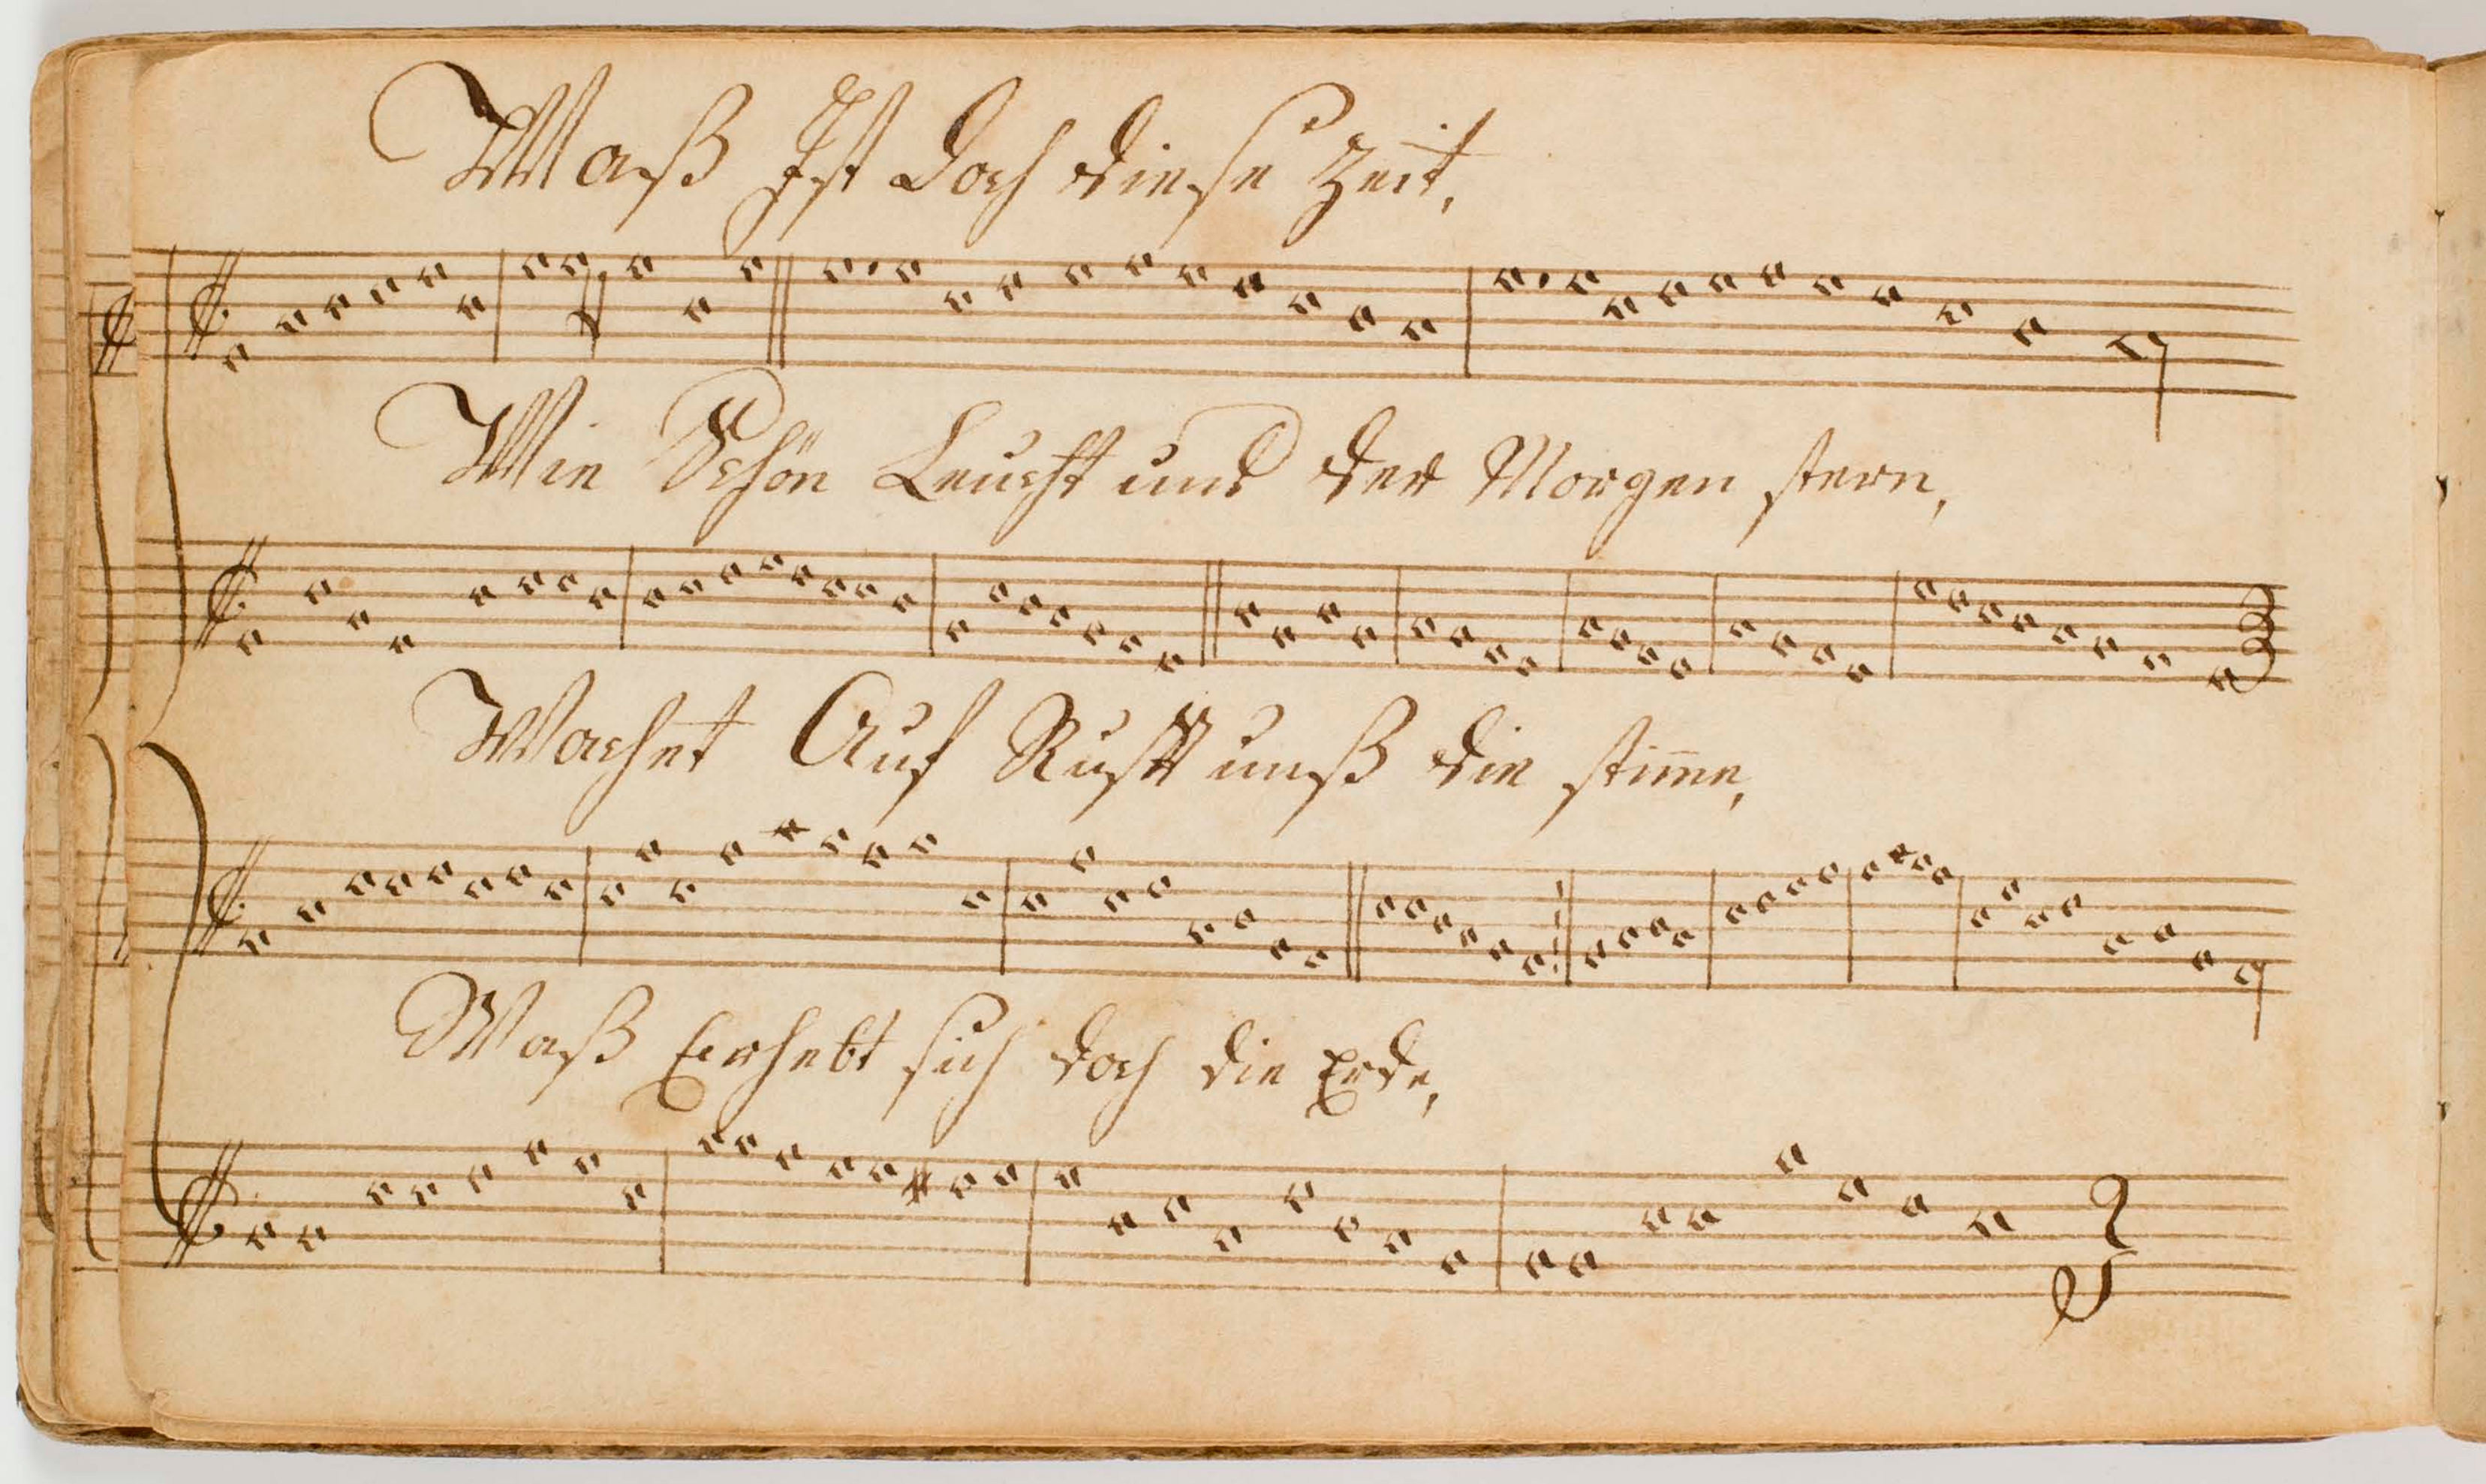 Waß Ist Doch diese Zeit,
Wie Schön Leucht uns der Morgen stern,
Wachet Auf Rufft unß die stim̅e,
Waß Erhebt sich doch die Erde,